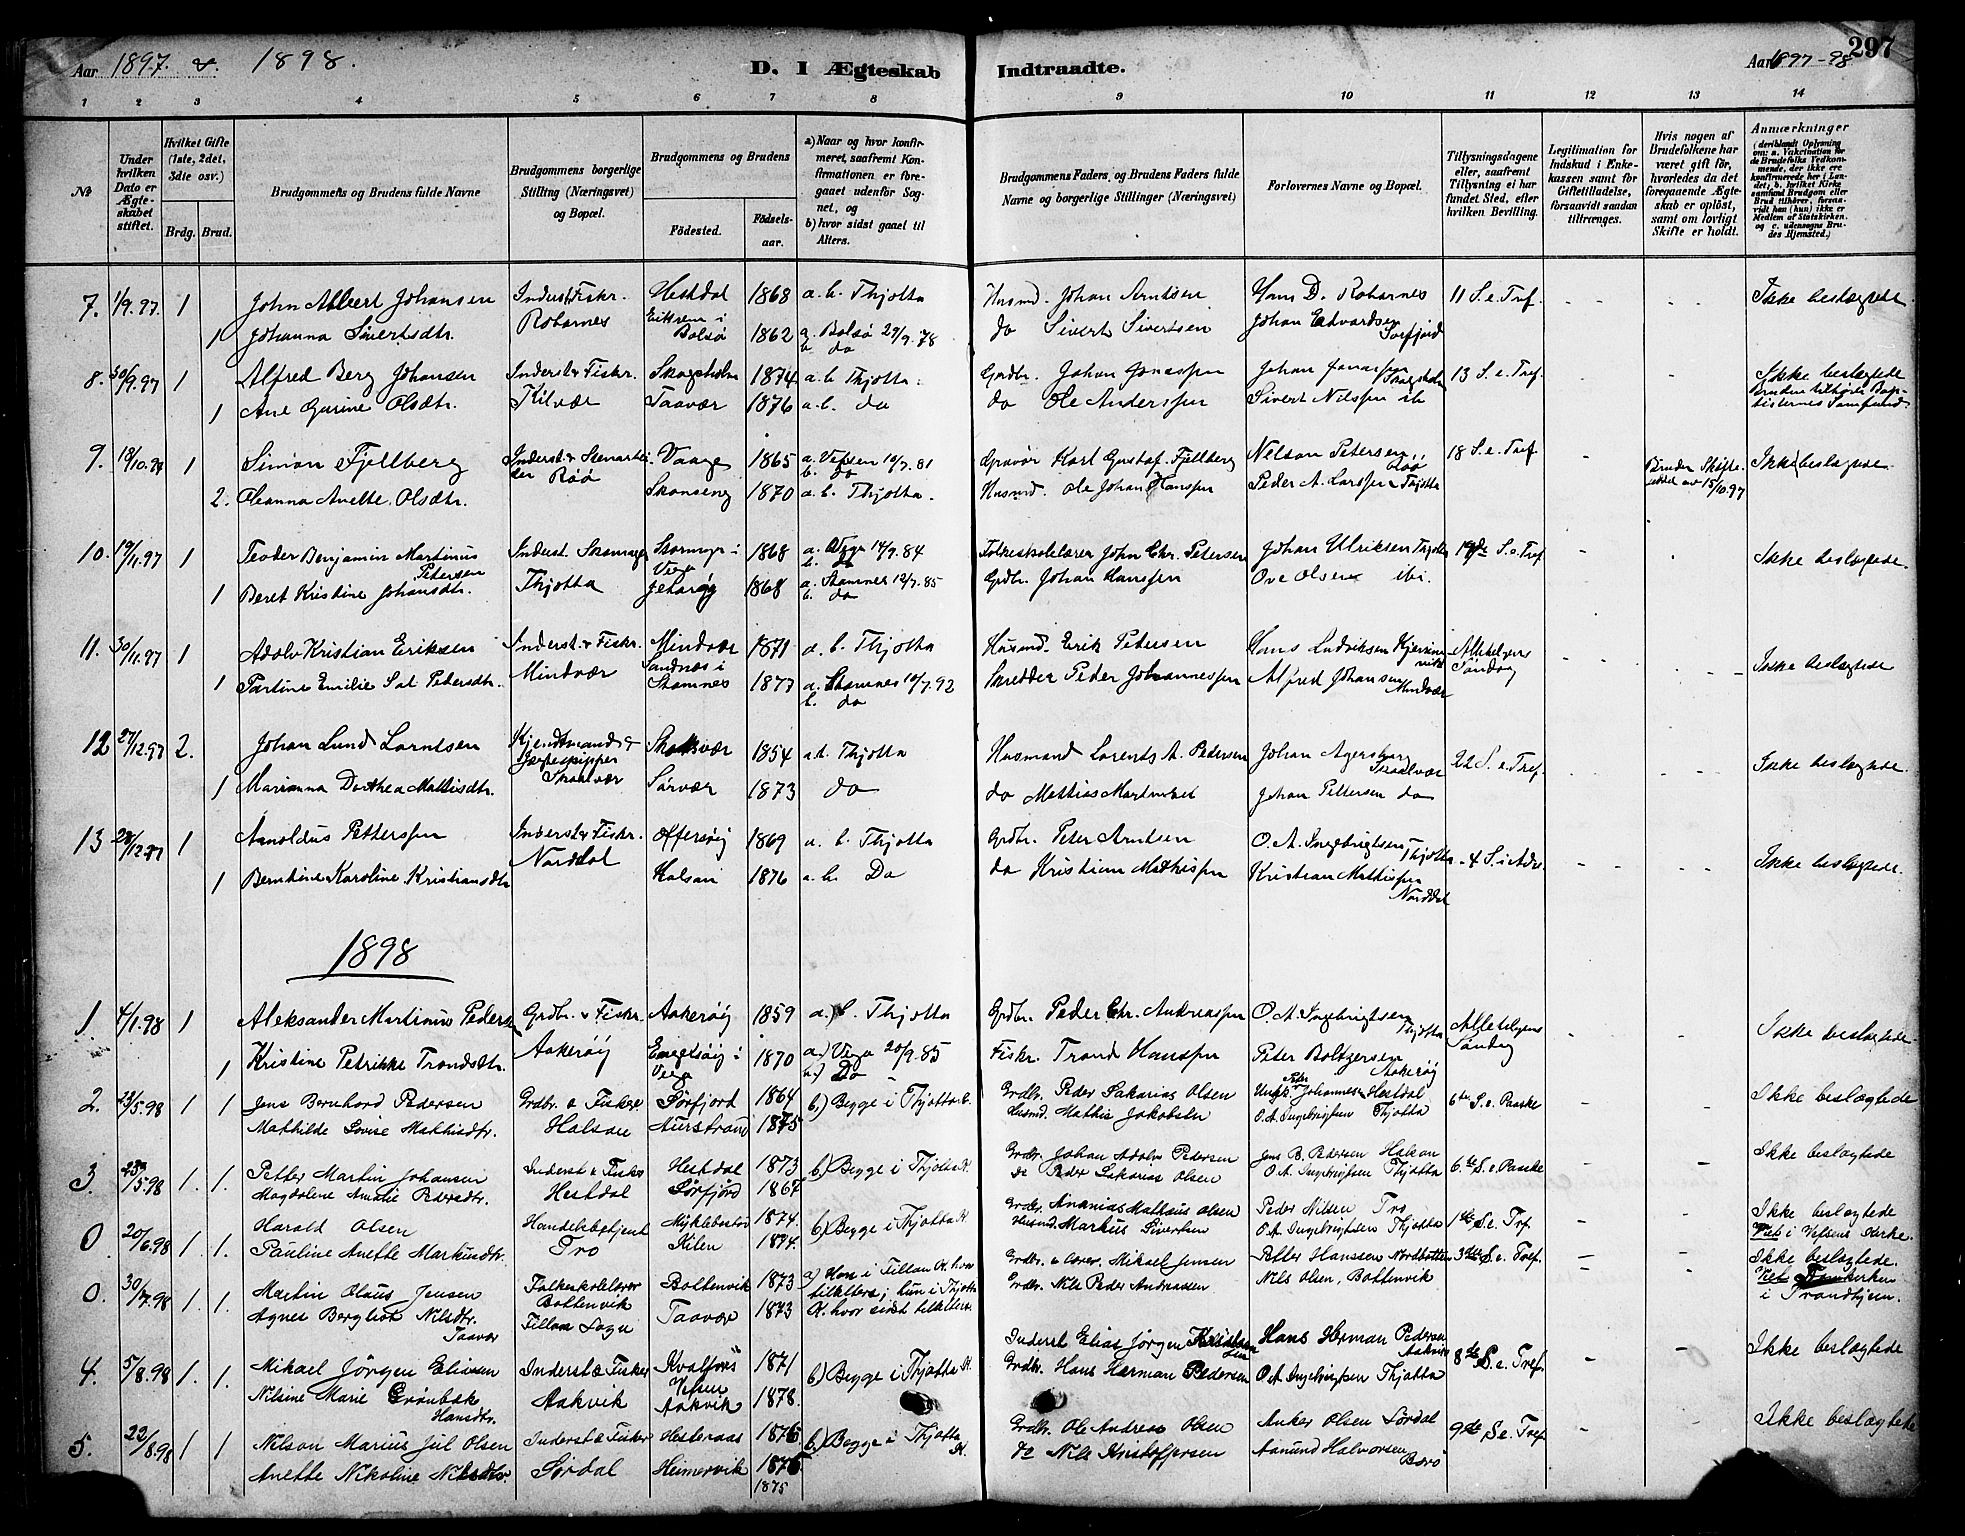 Aar 1897. & 1898.
D. I Ægteskab Indtraadte.
Aar 1897-98
297
1 2 3 4 5 6 7 8 9 10 11 12 13 14
No
Under hvilken Dato er Ægteskabet stiftet.
Hvilket Gifte (1ste, 2det, 3die osv.)
Brdg. Brud.
Brudgommens og Brudens fulde Navne
Brudgommens borgerlige Stilling (Næringsvei) og Bopæl.
Brudgommens og Brudens
Fødested.
Fødselsaar.
a) Naar og hvor konfirmeret, saafremt Konfirmationen er foregaaet udenfor Sognet, og
b) hvor sidst gaaet til Alters.
Brudgommens Faders, og Brudens Faders fulde Navne og borgerlige Stillinger (Næringsvei)
Forlovernes Navne og Bopæl.
Tillysningsdagene eller, saafremt Tillysning ei har fundet Sted, efter hvilken Bevilling.
Legitimation for Indskud i Enkekassen samt for Giftetilladelse, forsaavidt saadan tiltrænges.
Hvis nogen af Brudefolkene har været gift før, hvorledes da det foregaaende Ægteskab er opløst, samt om lovligt Skifte er holdt.
Anmærkninger
(deriblandt Oplysning om: a. Vakcination for de Brudefolks Vedkommende, der ikke ere konfirmerede her i Landet; b. hvilket Kirkesamfund Brudgom eller Brud tilhører, forsaavidt han (hun) ikke er Medlem af Statskirken. og c. udensogns Brudes Hjemsted.)
7. 1/9.97 1 John Albert Johansen Inderst & Fiskr. Hestdal 1868 a.b. Thjøtta Husmd. Johan Arntsen Hans D. Robarnes 11 S.e.Tref. - - - Ikke beslægtede
1 Johanna Sivertsdtr. Robarnes Eikrem i Bolsø 1862 a. Bolsø 29/9.78 b. do do Sivert Sivertsen Johan Edvardsen Sørfjord
8. 30/9.97 1 Alfred Berg Johansen Inderst & Fiskr. Skogsholm 1874 a.b. Thjøtta. Grdbr. Johan Jonassen Johan Jonassen Skogsholm 13 S.e.Tref. Ikke beslægtede
1 Ane Gurine Olsdtr. Kilvær Taavær 1876 a.b. do do Ole Anderssen Sivert Nilssen ib Bruden tilhører Baptisternes Samfund.
9. 18/10.97 1 Simon Fjellberg Inderst & Stenarbeider Røø Vaage 1865 a. Vefsen 10/7.81 b. Do Gravør Karl Gustaf Fjellberg Nelson Petersen Røø 18 S.e.Tref - Bruden Skifte- av 15/10.97 Ikke beslægtede
2. Oleanna Anette Olsdtr. Skonseng 1870 a.b. Thjøtta. Husmd. Ole Johan Hanssen Peder A. Larssen Thjøtta
10. 19/11.97 1 Teodor Benjamin Martinus Petersen Inderst. Skomager i Vega 1868 a. Vega 14/9.84 b. do Folkeskolelærer John Chr. Petersen Johan Ulriksen Thjøtta 19de S.e.Tref - Ikke beslægtede.
1 Beret Kristine Johansdtr. Thjøtta 1868 a. Stamnes 12/7.85 b. do Grdbr. Johan Hanssen Ove Olsen ibi.
11. 30/11.97 1 Adolv Kristian Eriksen Inderst. & Fiskr. Mindvær 1871 a.b. Thjøtta Husmd. Erik Petersen Hans Ludviksen Allehelgens Søndag - - - Ikke beslægtede
1 Emilie Petersdtr. Mindvær Sandnes i Stamnes 1873 a. Stamnes 10/7.92 b. do Skredder Peder Johannessen Alfred Johansen Mindvær
12 27/12.97 2. Johan Lund Larntsen Kjendtmand & Jægteskipper Skaalvær 1854 a.b. Thjøtta Husmand Lorents A. Pedersen Johan Agersborg Skaalvær 22 S.e.Tref. - Ikke beslægtede.
1 Marianna Dorthea Mathisdtr. Sørvær 1873 do do Mathias Johan Pettersen do
13 28/12.97 1 Arnoldus Petterssen Inderst & Fiskr. Offersøig 1869 a.b. Thjøtta Grdbr. Peter Arntsen O.A. Ingebrigtsen Thjøtta - 4 S.i Adv. - - - Ikke beslægtede.
1 Berntine Karoline Kristiansdtr Norddal Halsan 1876 a.b. Do do Kristian Mathissen Kristian Mathissen Norddal
1898
1. 4/1.98 1 Aleksander Martinus Pedersen Grdbr. & Fiskr. Aakerøig 1859 a.) b. Thjøtta Grdbr. Peder Chr. Andreassen O.A. Ingebrigtsen Thjøtta Allehelgens Søndag - - Ikke beslægtede
1 Kristine Petrikke Trondsdtr. Aakerøig i Vega 1870 a.) Vega 20/9.85 b.) Do Fiskr. Trond Hanssen Peter Boltzersen Aakerøig
2. 23/5.98 1 1 Jens Bernhard Pedersen Grdbr. & Fisker Sørfjord 1864 b.) Begge i Thjøtta k. Grdbr. Peder Sakarias Olsen Ungk. Peter Johannes Hestdal 6te S.e. Paaske - - Ikke beslægtede
Mathilde Lovise Mathisdtr. Halsan Aurstrand 1875 Husmd. Mathis Jakobsen O.A. Ingebrigtsen Thjøtta
3. 23/5.98 1. 1. Petter Martin Johansen Inderst & Fisker Hestdal 1873 b.) Begge i Thjøtta K. Grdbr. Johan Adolv Pedersen Jens B. Pedersen Halsan 6.te S.e. Paaske - Ikke beslægtede
Magdalene Amalie Pedersdtr. Hestdal Sørfjord 1867 do Peder Sakarias Olsen O.A. Ingebrigtsen Thjøtta
0 20/6.98 1. 1. Harald Olsen Handelsbetjent Myklebostad 1874. b.) Begge i Thjøtta K. Grdbr. Ananias Mathæus Olsen Peder Nilsen Tro 1ste S.e. Trf. - - Ikke beslægtede
Pauline Anette Markusdtr. Tro Kilen 1874. Husmd Markus Sivertsen O.A. Ingebrigtsen Thjøtta Viet i Vefsens Kirke.
0. 30/7.98 1. 1. Martin Olaus Jensen Folkeskolelærer Bottenvik 1873 a) Han i Tillan K. hvor tilalters; hun i Thjøtta K. hvor sidst tilalters Grdbr. & Mikael Jensen Petter Hanssen Nordbotten 3die S.e. Tref. - Ikke beslægtede.
Agnes Bergliot Nilsdtr. Taavær Bottenvik Tillan Sogn Taavær 1873 Grdbr. Nils Peder Andreassen Nils Olsen, Bottenvik Viet Domkirken i Trondhjem.
4. 5/8.98 1. 1. Mikael Jörgen Eliassen Inderst & Fisker Kvalfors Vefsen 1871 b.) Begge i Thjøtta K. Inderst Elias Jørgen Kristensen Hans Herman Pedersen Aakvik 8de S.e. Tref. - - Ikke beslægtede
Nilsine Marie Grönbæk Hansdtr. Aakvik Aakvik 1878. Grdbr. Hans Herman Pedersen O.A. Ingebrigtsen Thjøtta
5. 22/8.98 1 1 Nilson Marius Jul Olsen Inderst & Fisker Hesteraas 1876 b.) Begge i Thjøtta K. Grdbr. Ole Andreas Olsen Anker Olsen Sørdal 9de S.e. Tref - - Ikke beslægtede
Anette Nikoline Nilsdtr. Sørdal Heimervik 1875 do Nils Kristoffersen Aamund Halvorsen Barø
1875